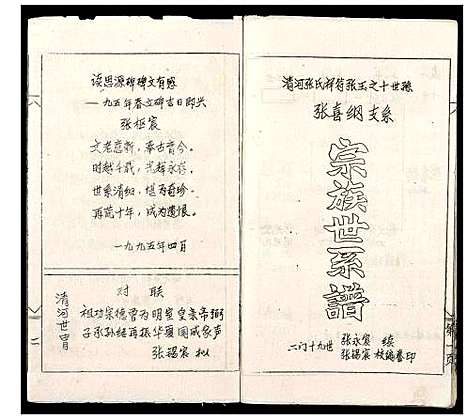 清河张氏祥符张玉之十世孙
张喜纲支系
宗族世系譜
二门十九世
张永宸 续
张锡宸 校编卷印
读思源碑碑文有感
一九九五年春立碑吉日即兴
张枢宸
文老意新，承古音今。
时越千载，光辉永存。
世系清细，堪为奇珍。
再荒十年，成为遗恨。
一九九五年四月
对 联
祖功宗德曾为明室皇亲帝朝
子承孙继再振华夏国威家声
张锡宸 拟
清河世胄
二